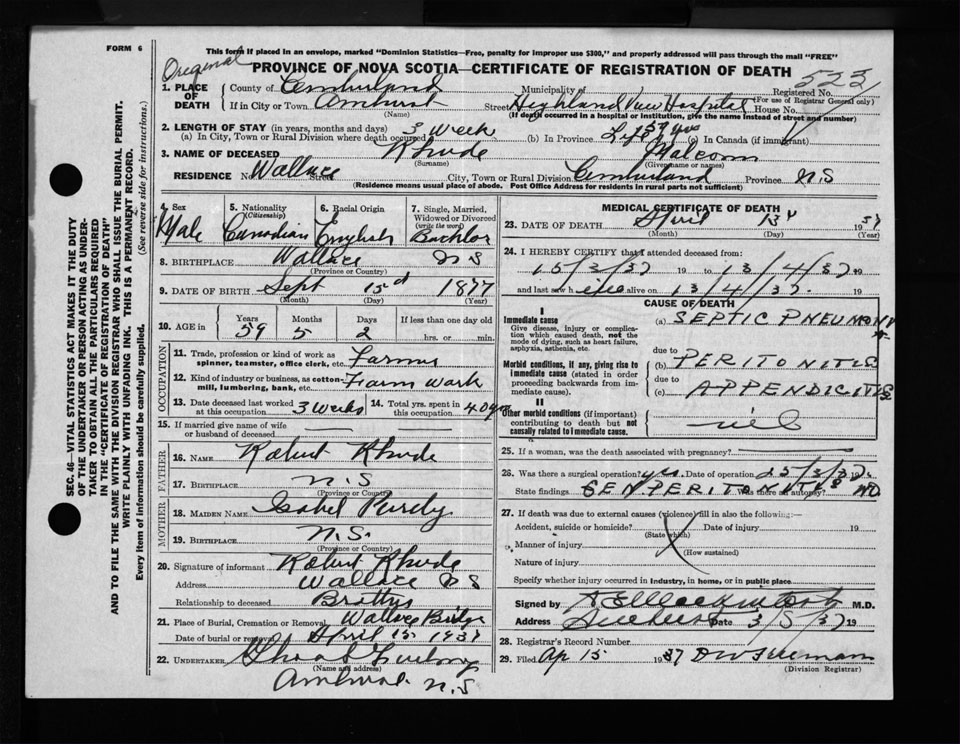 FORM 6
This form if placed in an envelope, marked "Dominion Statistics—Free, penalty for improper use $300," and properly addressed will pass through the mail "FREE"
Original
PROVINCE OF NOVA SCOTIA—CERTIFICATE OF REGISTRATION OF DEATH 523
1. PLACE OF DEATH
County of Cumberland Municipality of Registered No. (For use of Registrar General only)
If in City or Town Amherst (Name) Street Highland View Hospital House No.
(If death occurred in a hospital or institution, give the name instead of street and number)
2. LENGTH OF STAY (in years, months and days)
(a) In City, Town or Rural Division where death occurred 3 Week (b) In Province Life 59 yrs (c) In Canada (if immigrant)
3. NAME OF DECEASED Rhude (Surname) Malcom (Given name or names)
RESIDENCE No. Wallace Street City, Town or Rural Division Cumberland Province N.S
(Residence means usual place of abode. Post Office Address for residents in rural parts not sufficient)
4. Sex Male
5. Nationality (Citizenship) Canadian
6. Racial Origin English
7. Single, Married, Widowed or Divorced (write the word) Bachlor
8. BIRTHPLACE Wallace N S
(Province or Country)
9. DATE OF BIRTH Sept 15 d 1877
(Month) (Day) (Year)
10. AGE in Years 59 Months 5 Days 2 If less than one day old hrs. or min.
OCCUPATION
11. Trade, profession or kind of work as spinner, teamster, office clerk, etc. Farmer
12. Kind of industry or business, as cotton-mill, lumbering, bank, etc. Farm Work
13. Date deceased last worked at this occupation 3 Weeks
14. Total yrs. spent in this occupation 40 yrs
15. If married give name of wife or husband of deceased
FATHER
16. NAME Robert Rhude
17. BIRTHPLACE N.S
(Province or Country)
MOTHER
18. MAIDEN NAME Isabel Purdy
19. BIRTHPLACE N.S.
(Province or Country)
20. Signature of informant Robert Rhude
Address Wallace N S
Relationship to deceased
21. Place of Burial, Cremation or Removal Wallace Bridge
Date of burial or removal April 15 1937
22. UNDERTAKER
(Name and address)
Amherst N.S
MEDICAL CERTIFICATE OF DEATH
23. DATE OF DEATH April 13 1937
(Month) (Day) (Year)
24. I HEREBY CERTIFY that I attended deceased from:
15/3/37 19 to 13/4/37 19
and last saw h alive on 13/4/37. 19
CAUSE OF DEATH
I
Immediate cause
Give disease, injury or complication which caused death, not the mode of dying, such as heart failure, asphyxia, asthenia, etc.
(a) SEPTIC PNEUMONIA
due to
Morbid conditions, if any, giving rise to immediate cause (stated in order proceeding backwards from immediate cause).
(b) PERITONITIS
due to
(c) APPENDICITIS
II
Other morbid conditions (if important) contributing to death but not causally related to immediate cause.
nil
25. If a woman, was the death associated with pregnancy?
26. Was there a surgical operation? yes. Date of operation 25/3/37.
State findings GEN PERITONITIS Was there an autopsy? NO
27. If death was due to external causes (violence) fill in also the following:—
Accident, suicide or homicide? (State which) Date of injury 19
Manner of injury
(How sustained)
Nature of injury
Specify whether injury occurred in industry, in home, or in public place
Signed by M.D.
Address Amherst Date 3/5/37 19
28. Registrar's Record Number
29. Filed Ap 15 1937
(Division Registrar)
SEC. 46—VITAL STATISTICS ACT MAKES IT THE DUTY
OF THE UNDERTAKER OR PERSON ACTING AS UNDER-
TAKER TO OBTAIN ALL THE PARTICULARS REQUIRED
IN THE "CERTIFICATE OF REGISTRATION OF DEATH"
AND TO FILE THE SAME WITH THE DIVISION REGISTRAR WHO SHALL ISSUE THE BURIAL PERMIT.
WRITE PLAINLY WITH UNFADING INK. THIS IS A PERMANENT RECORD.
Every item of information should be carefully supplied. (See reverse side for instructions.)